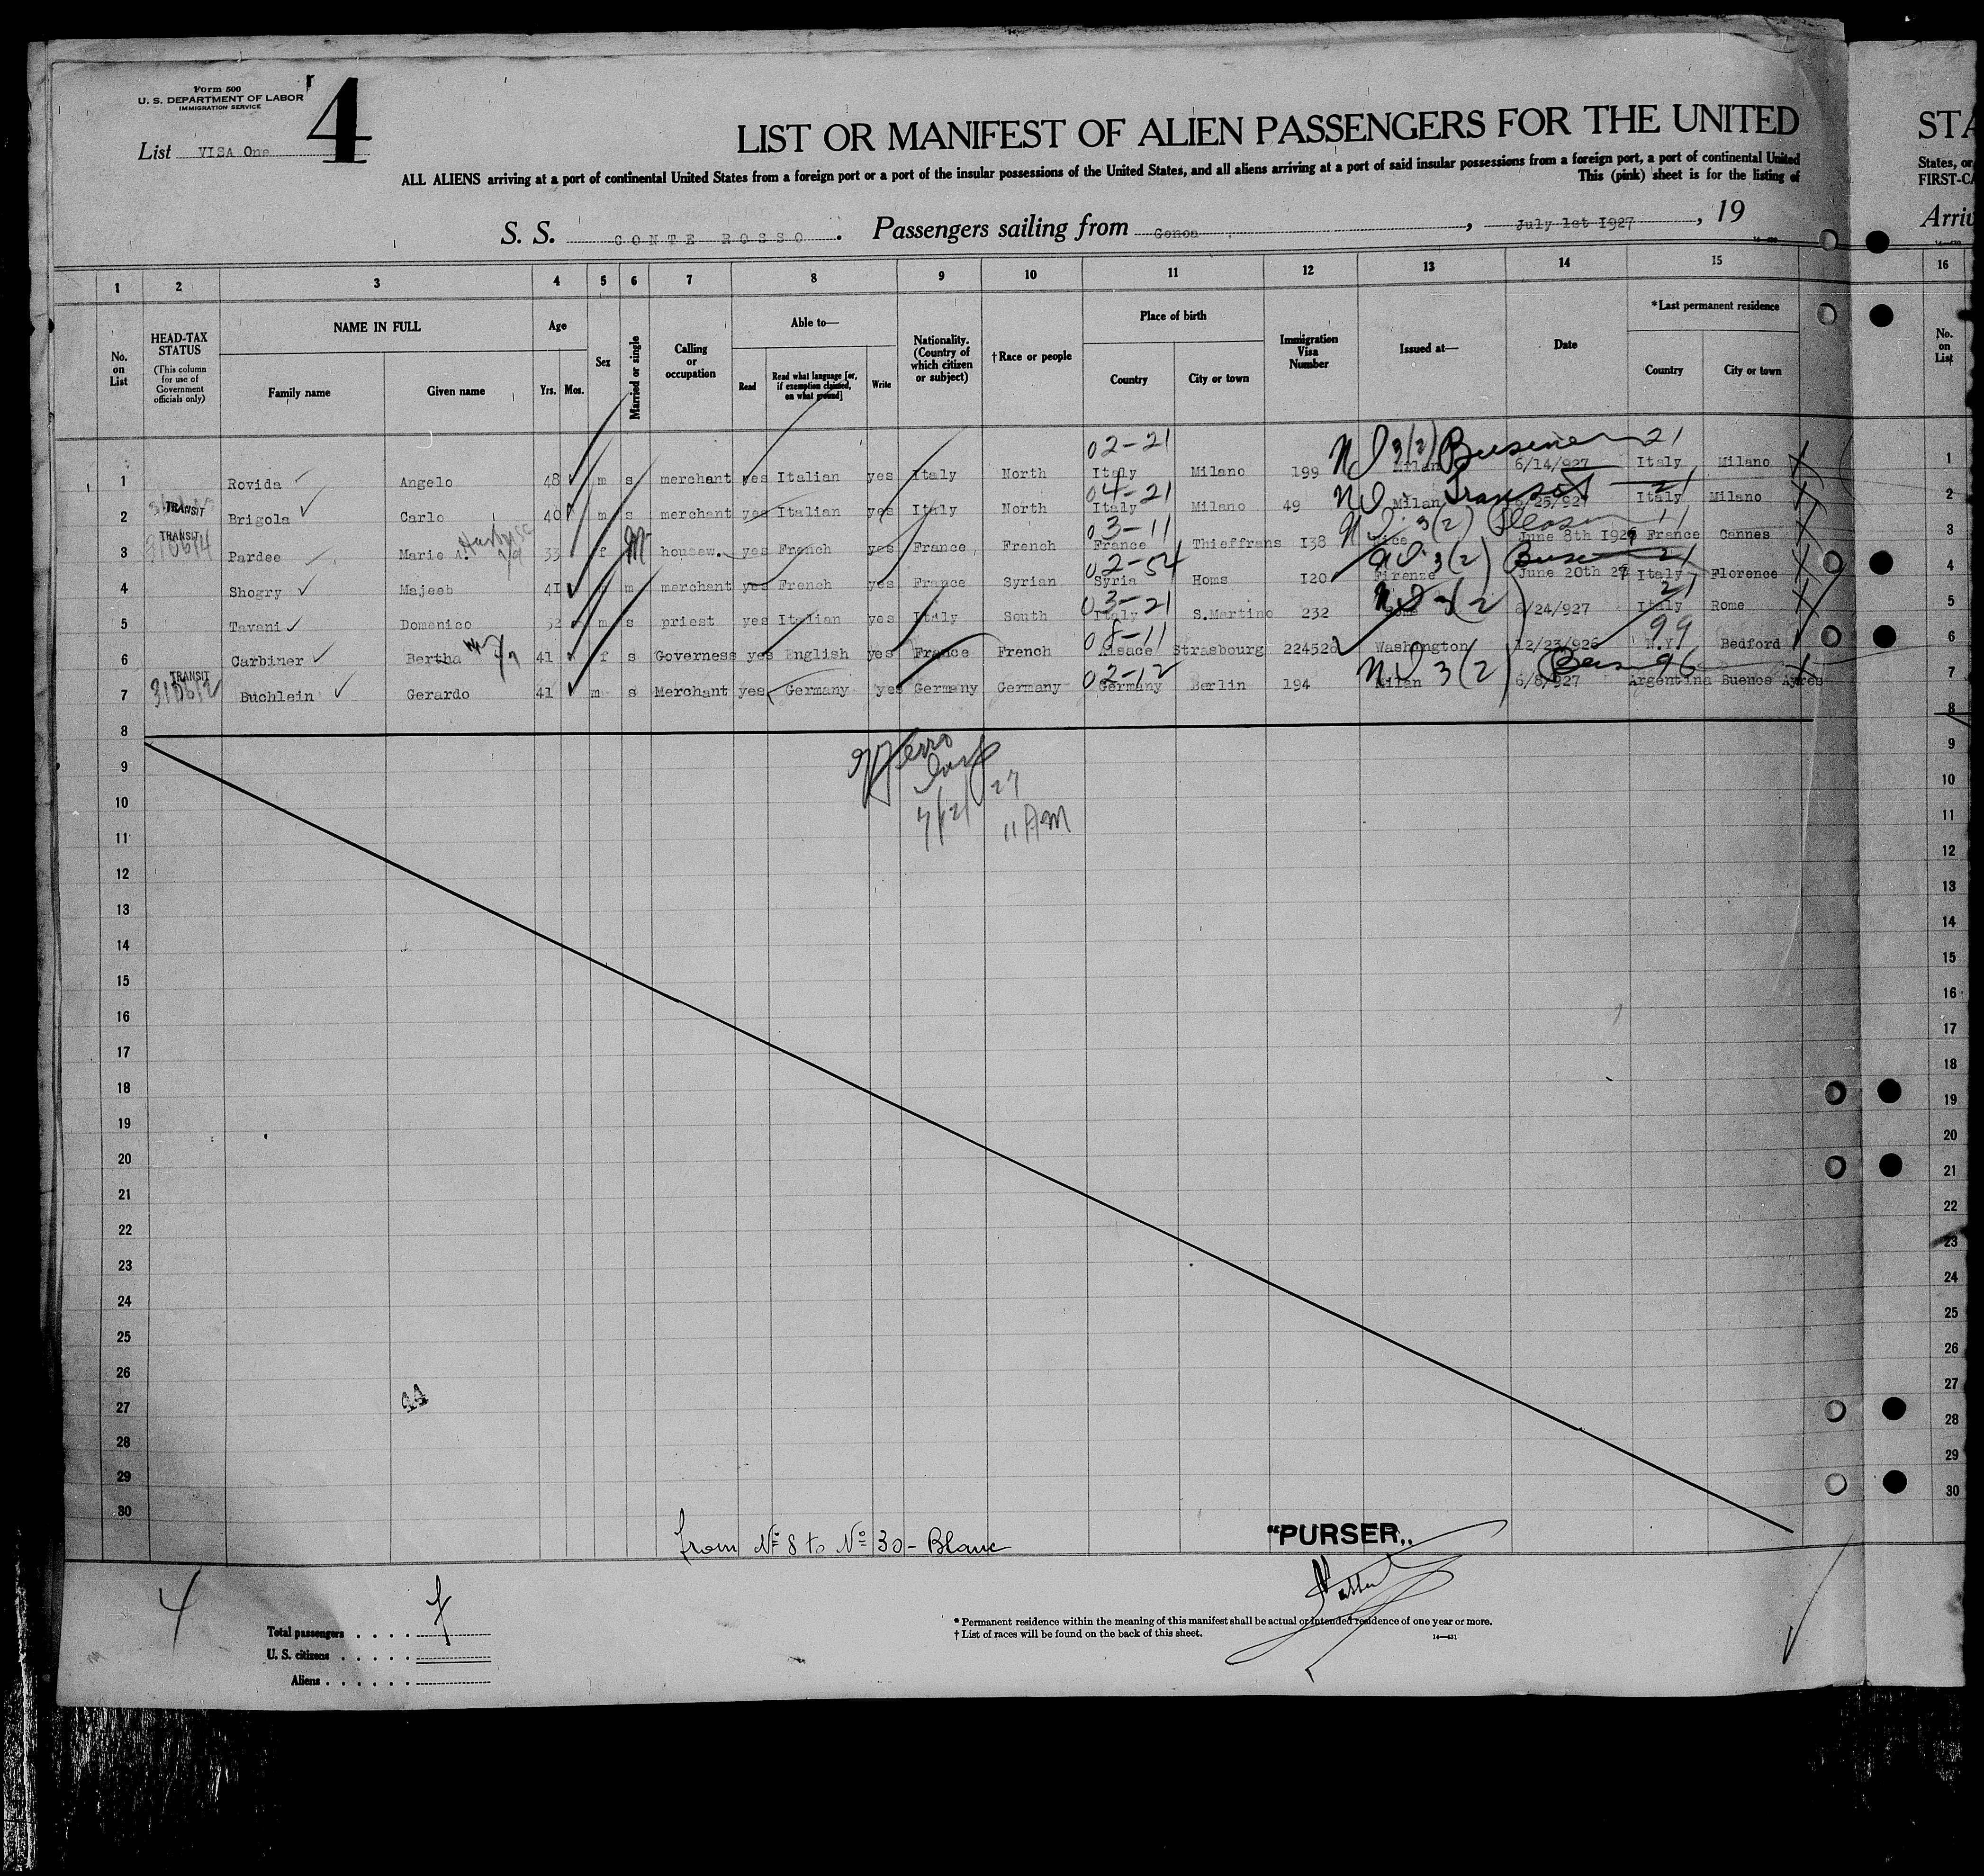 Form 500
U. S. DEPARTMENT OF LABOR
IMMIGRATION SERVICE
4
List VISA One
LIST OR MANIFEST OF ALIEN PASSENGERS FOR THE UNITED
STA
ALL ALIENS arriving at a port of continental United States from a foreign port or a port of the insular possessions of the United States, and all aliens arriving at a port of said insular possessions from a foreign port, a port of continental United
States, or
This (pink) sheet is for the listing of
FIRST-CA
S. S. CONTE ROSSO. Passengers sailing from Genoa, July 1st 1927, 19
Arriv
1 2 3 4 5 6 7 8 9 10 11 12 13 14 15 16
No. on List
HEAD-TAX STATUS
(This column for use of Government officials only)
NAME IN FULL
Family name
Given name
Age
Yrs. Mos.
Sex
Married or single
Calling or occupation
Able to—
Read
Read what language [or, if exemption claimed, on what ground]
Write
Nationality. (Country of which citizen or subject)
† Race or people
Place of birth
Country
City or town
Immigration Visa Number
Issued at—
Date
*Last permanent residence
Country
City or town
No. on List
02-21 3(2) Business 21
1 Rovida Angelo 48 m s merchant yes Italian yes Italy North Italy Milano 199 Milan 6/14/927 Italy Milano 1
04-21 Transit 21
2 TRANSIT Brigola Carlo 40 m s merchant yes Italian yes Italy North Italy Milano 49 Milan 6/25/927 Italy Milano 2
03-11 3(2) 11
3 TRANSIT Pardee Marie A. 33 f M housew. yes French yes France French France Thieffrans 138 Nice June 8th 1927 France Cannes 3
02-54 3(2) 21
4 Shogry Majeeb 41 m merchant yes French yes France Syrian Syria Homs 120 Firenze June 20th 27 Italy Florence 4
03-21 3(2) 21
5 Tavani Domenico 52 m s priest yes Italian yes Italy South Italy S.Martino 232 Rome 6/24/927 Italy Rome 5
08-11 99
6 Carbiner Bertha 41 f s Governess yes English yes France French Alsace Strasbourg 224526 Washington 12/23/926 N.Y. Bedford 6
02-12 3(2) 96
7 TRANSIT Buchlein Gerardo 41 m s Merchant yes Germany yes Germany Germany Germany Berlin 194 Milan 6/8/927 Argentina Buenos Ayres 7
8 8
9 9
10 10
7/2/27
11 AM
11 11
12 12
13 13
14 14
15 15
16 16
17 17
18 18
19 19
20 20
21 21
22 22
23 23
24 24
25 25
26 26
27 27
28 28
29 29
30 30
from Nº 8 to Nº 30 - Blanc
"PURSER,,
4
Total passengers . . . . 7
U. S. citizens . . . . .
Aliens . . . . . .
* Permanent residence within the meaning of this manifest shall be actual or intended residence of one year or more.
† List of races will be found on the back of this sheet.
14—431